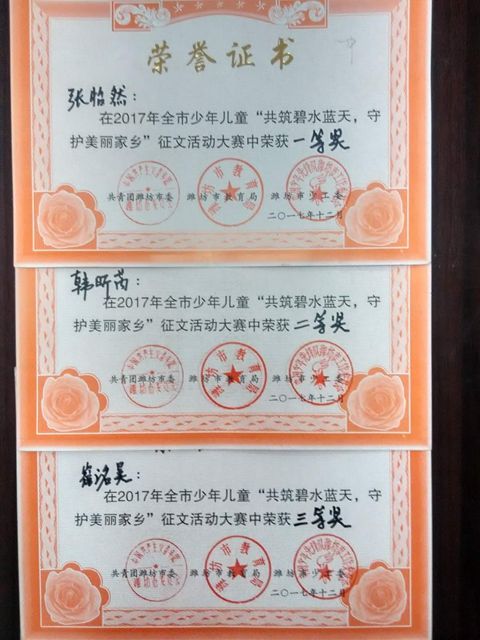 荣誉证书
张怡然：
在2017年全市少年儿童“共筑碧水蓝天，守
护美丽家乡”征文活动大赛中荣获一等奖
共青团潍坊市委 潍坊市教育局 潍坊市少工委
二〇一七年十二月
韩昕芮：
在2017年全市少年儿童“共筑碧水蓝天，守
护美丽家乡”征文活动大赛中荣获二等奖
共青团潍坊市委 潍坊市教育局 潍坊市少工委
二〇一七年十二月
崔洺昊：
在2017年全市少年儿童“共筑碧水蓝天，守
护美丽家乡”征文活动大赛中荣获三等奖
共青团潍坊市委 潍坊市教育局 潍坊市少工委
二〇一七年十二月